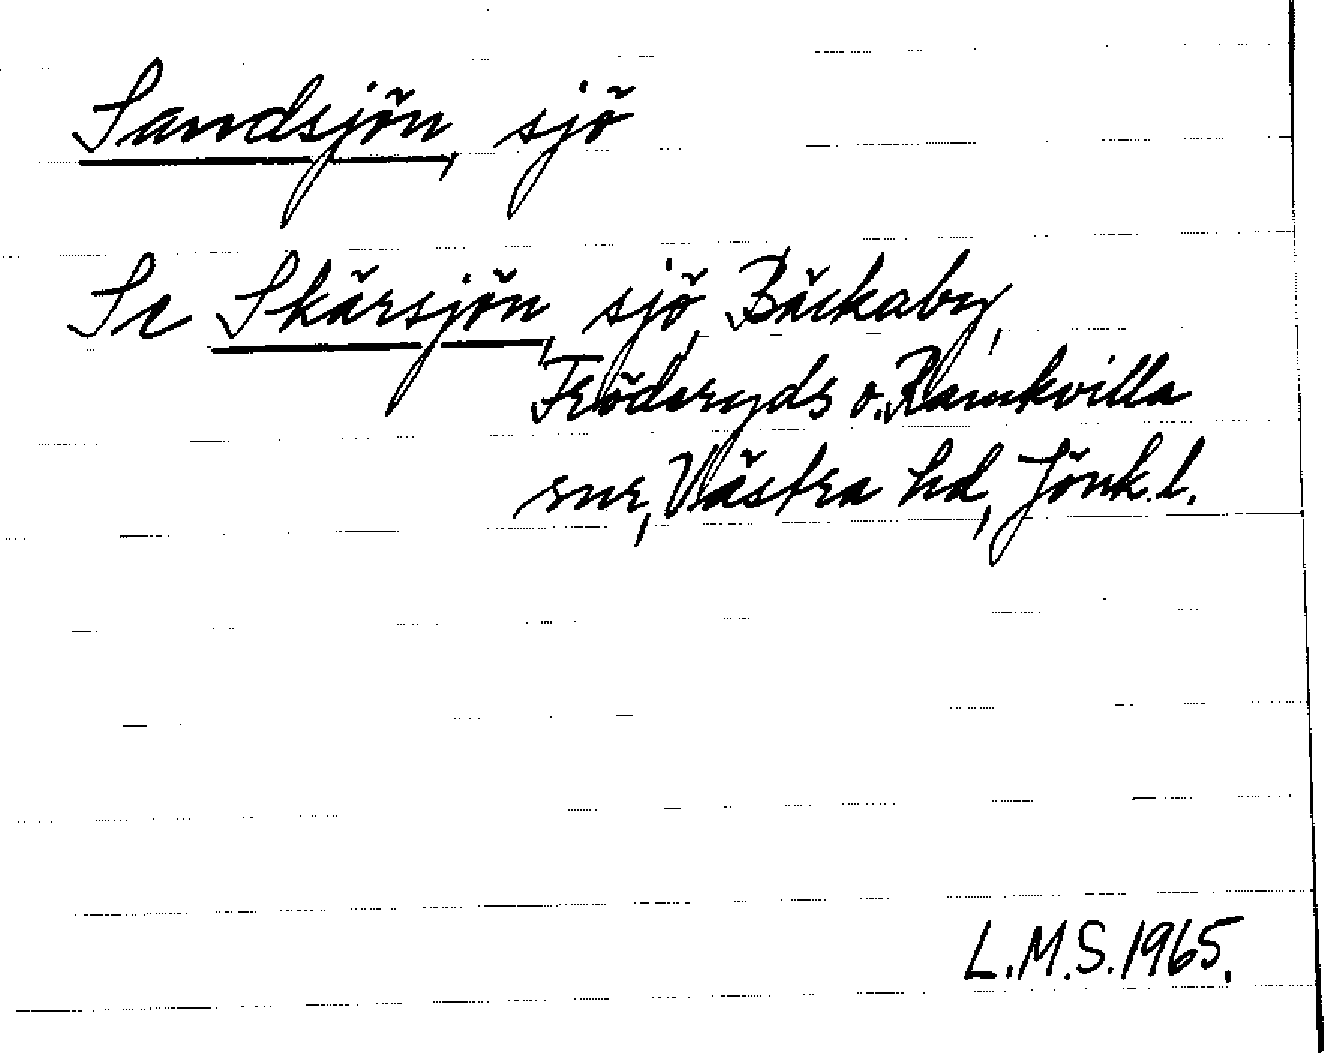 Sandsjön, sjö
Se Skärsjön, sjö, Bäckaby,
Fröderyds o. Ramkvilla
snr, Västra hd, Jönk. l.
L.M.S. 1965.